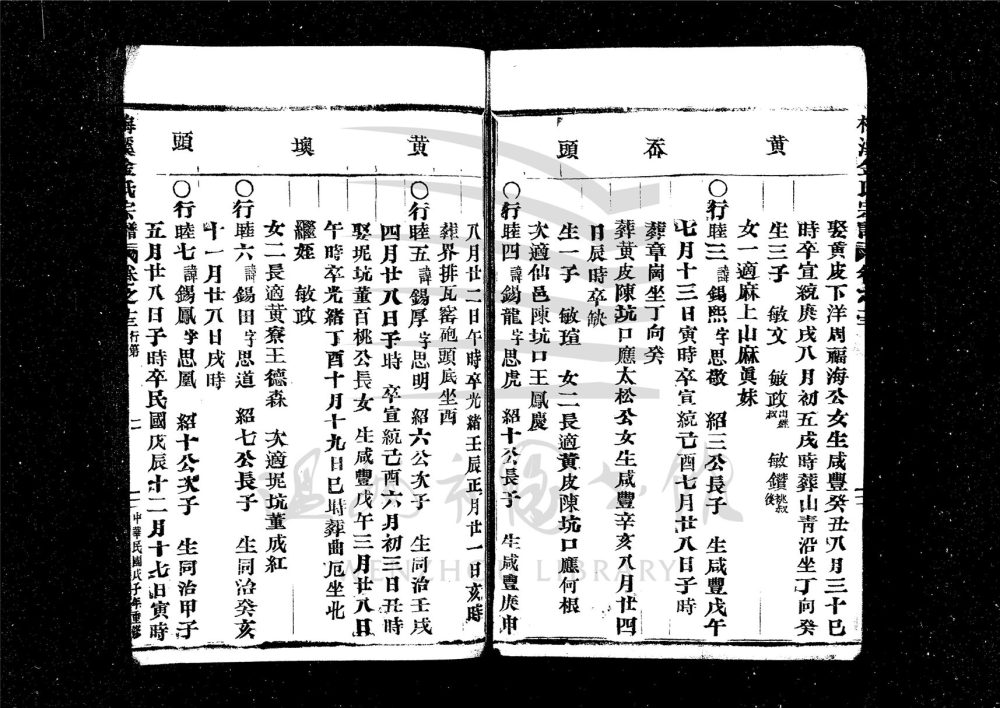 黃
岙
頭
娶黃皮下洋周福海公女生咸豐癸丑八月三十巳
時卒宣統庚戌八月初五戌時葬山青沿坐丁向癸
生三子 敏文 敏政出繼叔 敏鑽祧叔後
女一適麻上山麻眞妹
〇行睦三諱錫熙字思敬 紹三公長子 生咸豐戊午
七月十三日寅時卒宣統己酉七月廿八日子時
葬章崗坐丁向癸
葬黃皮陳坑口應太松公女生咸豐辛亥八月廿四
日辰時卒缺
生一子 敏瑄 女二長適黃皮陳坑口應何根
次適仙邑陳坑口王鳳慶
〇行睦四諱錫龍字思虎 紹十公長子 生咸豐庚申
黃
墺
頭
八月廿二日午時卒光緒壬辰正月廿一日亥時
葬界排瓦窑砲頭底坐酉
〇行睦五諱錫厚字思明 紹六公次子 生同治壬戌
四月廿八日子時 卒宣統己酉六月初三日丑時
娶坭坑董百桃公長女 生咸豐戊午三月廿八日
午時卒光緒丁酉十月十九日巳時葬曲厄坐北
繼姪 敏政
女二長適黃寮王德森 次適坭坑董成紅
〇行睦六諱錫田字思道 紹七公長子 生同治癸亥
十一月廿八日戌時
〇行睦七諱錫鳳字思凰 紹十公次子 生同治甲子
五月廿八日子時卒民國戊辰十二月十七日寅時
梅溪金氏宗譜 卷之三行第
中華民國戊子年重修
WENZHOU LIBRARY